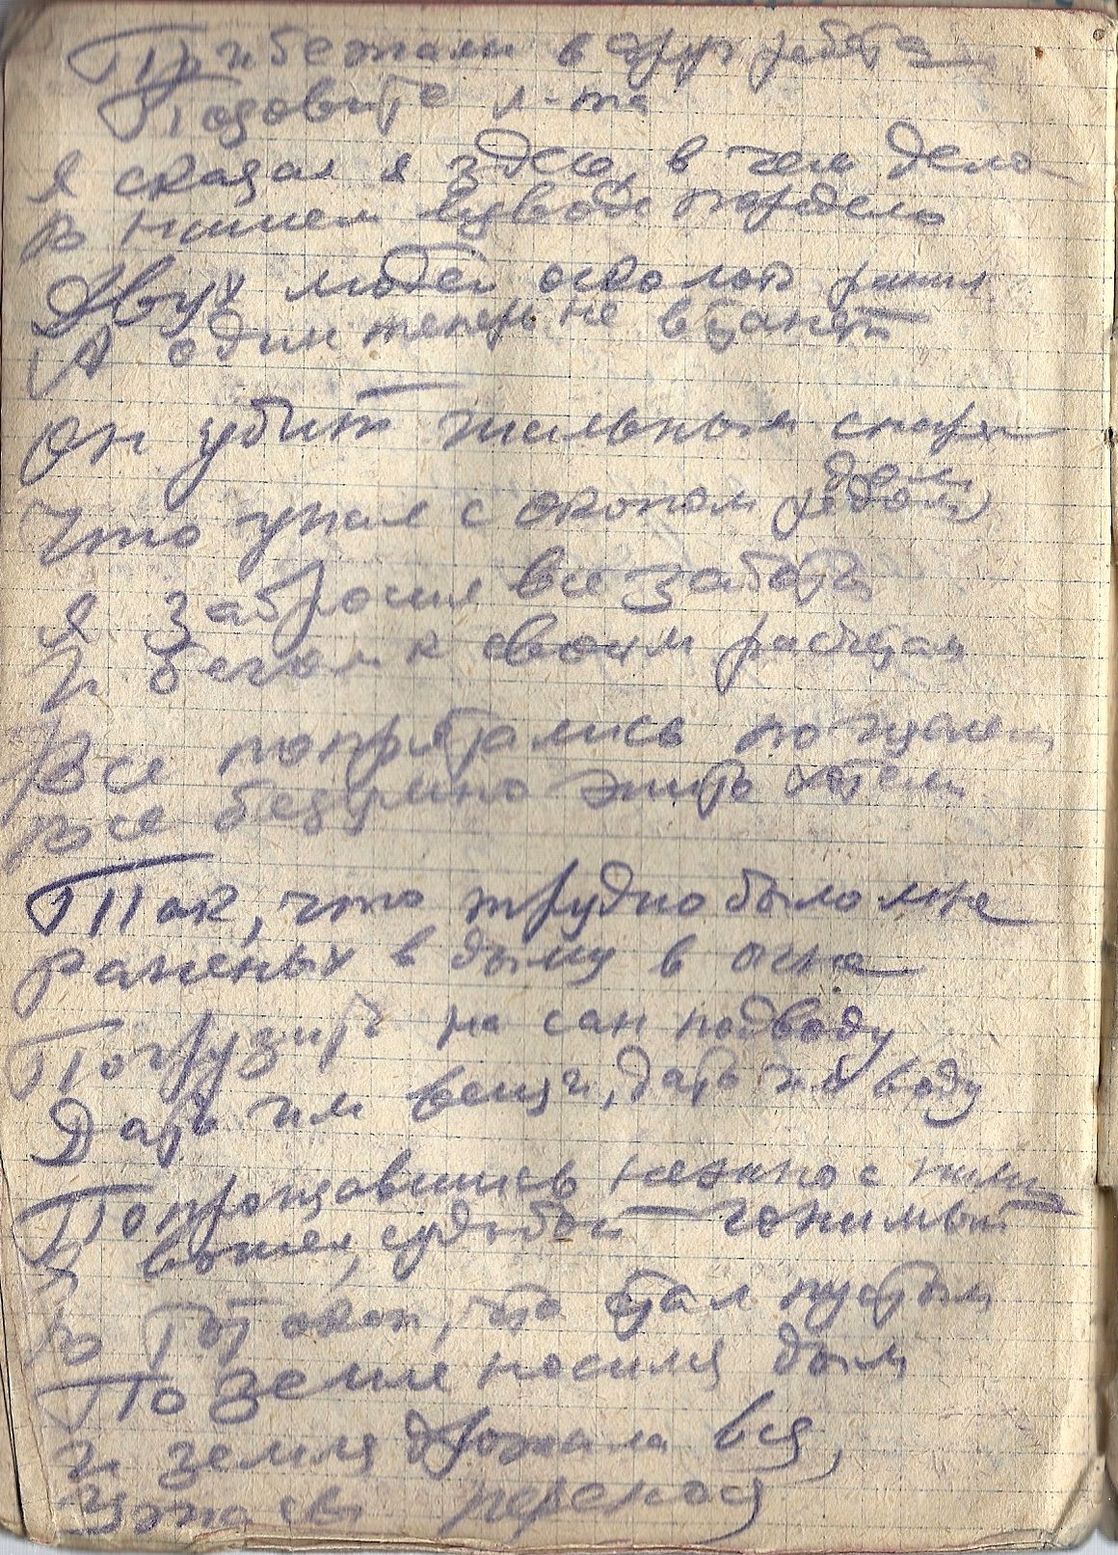 Прибежали вдруг ребята
Позовите л-та
Я сказал я здесь, в чем дело
В нашем взводе поредело
Двух людей осколок ранил
А один теперь не встанет
Он убит шальным снарядом
Что упал с окопом рядом
Я забросил все заботы
И бегом к своим расчетам
Все попрятались по щелям
Все безумно жить хотели
Так, что трудно было мне
Раненых в дыму в огне
Погрузить на сан подводу
Дать им вещи, дать им воду
Попрощавшись нежно с ними
Я вошел, судьбой гонимый
В тот окоп, что стал пустым
По земле носился дым
И земля дрожала вся,
Ужасы перенося